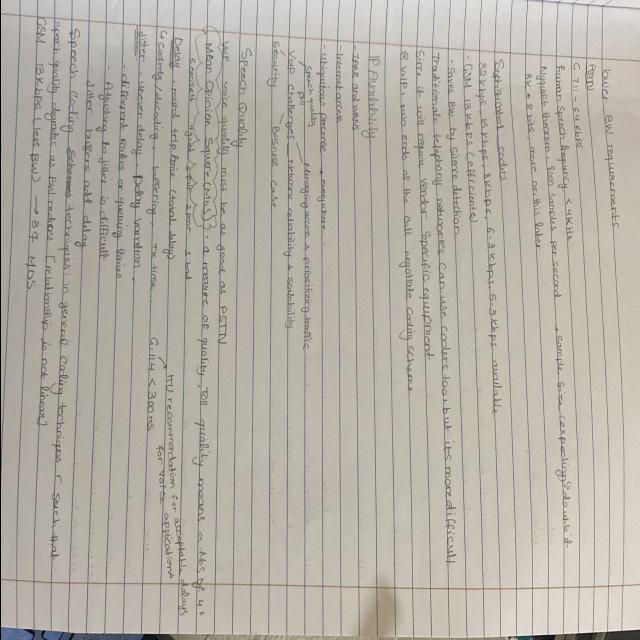 Lower BW requirements
PSTN
G.711 - 64 kbps
human speech frequency < 4KHz
Nyquist theorem: 8000 samples per second → sample size
8K * 8 bits, more on this later
Sophisticated coders
32kbps, 16 kbps, 8kbps, 6.3 kbps, 5.3kbps available
GSM 13 kbps (efficiente)
- Saves BW by silence detection
Traditional telephony networks can use coders too, but it's more difficult
Since it will require vendor specific equipment
@ VoIP - two ends of the call negotiate coding scheme
IP Availability
- IPAX and
- Internet access
- Ubiquitous presence → everywhere
Speech quality
Managing access & prioritizing traffic
VoIP challenges
Network reliability & scalability
Security
Business case
Speech Quality
VoIP voice quality must be as good as PSTN
Mean Opinion Square (MOS): a measure of quality, Toll quality means a MOS of 4+
5 excellent 4 good 3 fair 2 poor 1 bad
Delay: round trip time (total delay)
ITU recommendation for acceptable delays
↳ Coding/decoding, buffering, Tx time. G.114 < 300ms for voice applications
Jitter: Uneven delay, Delay variation,
- different routes or queuing times
- Adjusting to jitter is difficult
- Jitter buffers add delay
Speech Coding techniques: in general coding techniques r such that
speech quality degrades as BW reduces [relationship is not linear]
GSM 13kbps (less BW) → 3.7 MOS